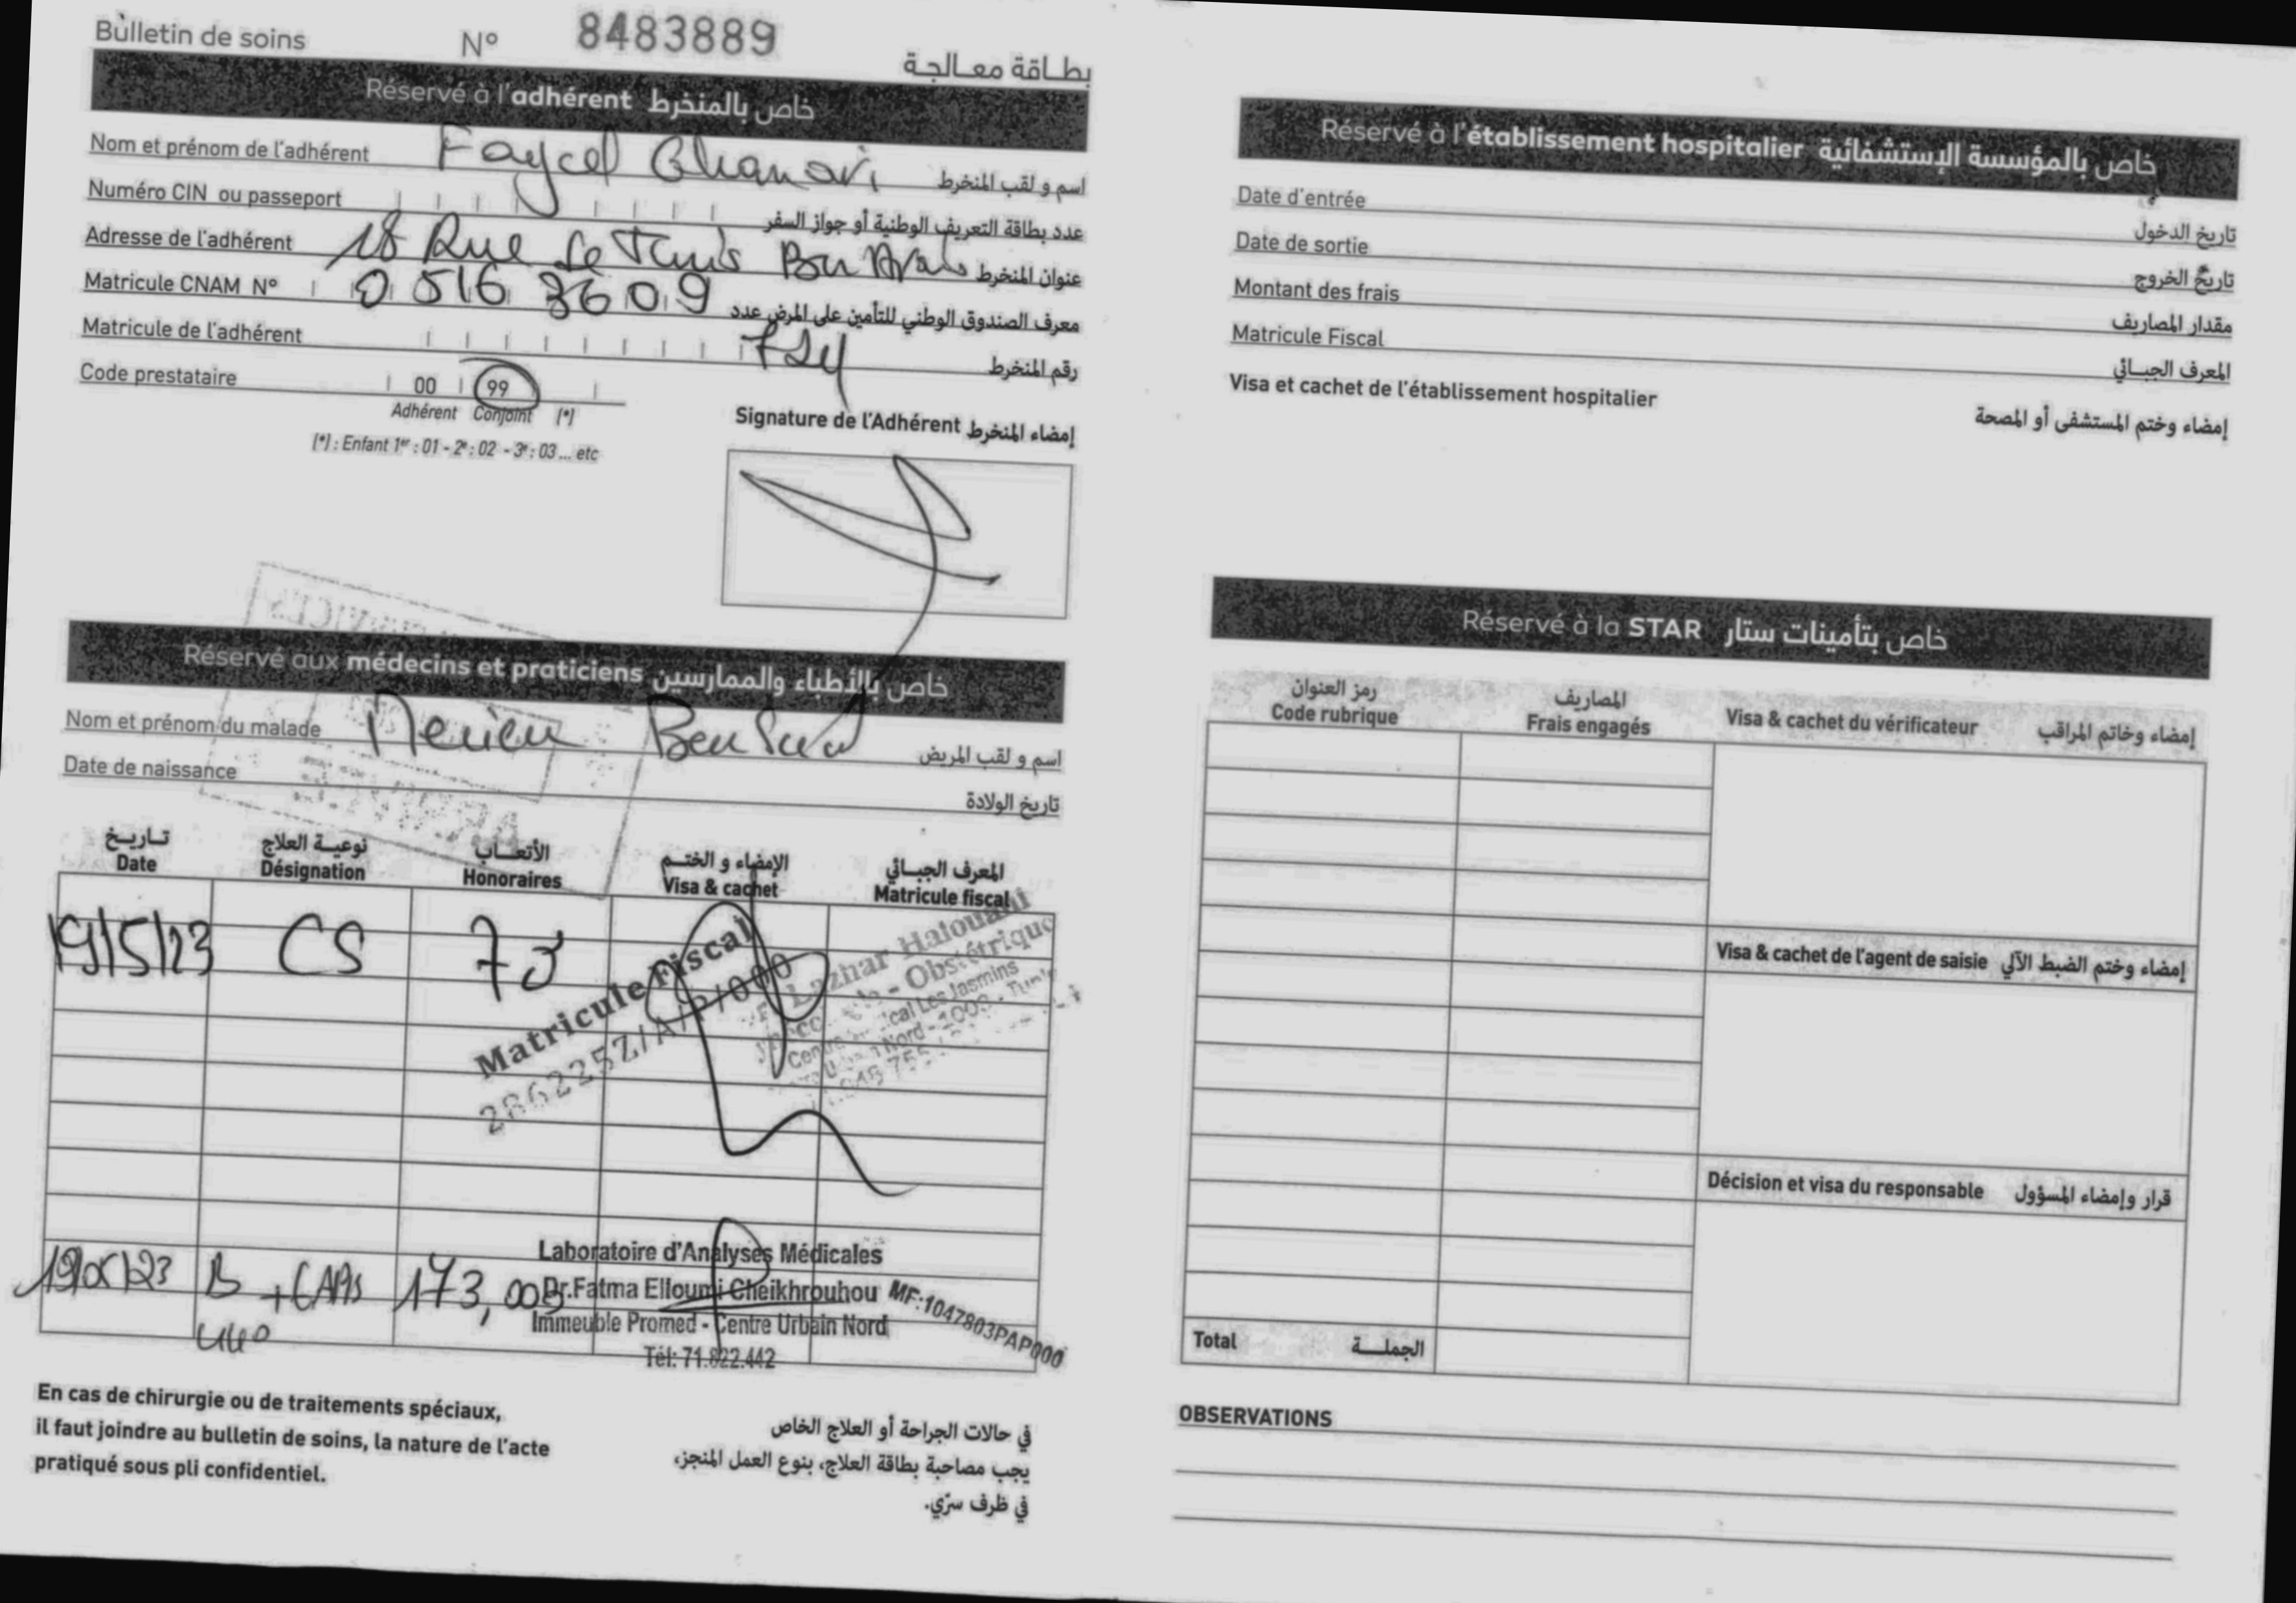 Bulletin de soins N° 8483889 بطاقة معالجة
Réservé à l'adhérent خاص بالمنخرط
Nom et prénom de l'adhérent Faycel Ghanari اسم و لقب المنخرط
Numéro CIN ou passeport عدد بطاقة التعريف الوطنية أو جواز السفر
Adresse de l'adhérent 18 Rue de Tunis Ben Arous عنوان المنخرط
Matricule CNAM N° 0516 3609 معرف الصندوق الوطني للتأمين على المرض عدد
Matricule de l'adhérent 724 رقم المنخرط
Code prestataire 00 99
Adhérent Conjoint (*)
(*) : Enfant 1er : 01 - 2e : 02 - 3e : 03 ... etc
Signature de l'Adhérent إمضاء المنخرط
Réservé aux médecins et praticiens خاص بالأطباء والممارسين
Nom et prénom du malade Meriem Ben اسم و لقب المريض
Date de naissance تاريخ الولادة
تاريخ نوعية العلاج الأتعاب الإمضاء و الختم المعرف الجبائي
Date Désignation Honoraires Visa & cachet Matricule fiscal
19/5/23 CS 70
Matricule Fiscal
286225Z/A/P/000
Lazhar Halouani
- Obstétrique
Les Jasmins
Nord - 1003 - Tunis
19/05/23 B + 173,000
440
Laboratoire d'Analyses Médicales
Dr.Fatma Elloumi Cheikhrouhou
Immeuble Promed - Centre Urbain Nord
Tél: 71.822.442
MF:1047803PAP000
En cas de chirurgie ou de traitements spéciaux,
il faut joindre au bulletin de soins, la nature de l'acte
pratiqué sous pli confidentiel.
في حالات الجراحة أو العلاج الخاص
يجب مصاحبة بطاقة العلاج، بنوع العمل المنجز،
في ظرف سرّي.
Réservé à l'établissement hospitalier خاص بالمؤسسة الإستشفائية
Date d'entrée تاريخ الدخول
Date de sortie تاريخ الخروج
Montant des frais مقدار المصاريف
Matricule Fiscal المعرف الجبائي
Visa et cachet de l'établissement hospitalier إمضاء وختم المستشفى أو المصحة
Réservé à la STAR خاص بتأمينات ستار
رمز العنوان المصاريف
Code rubrique Frais engagés Visa & cachet du vérificateur إمضاء وخاتم المراقب
Visa & cachet de l'agent de saisie إمضاء وختم الضبط الآلي
Décision et visa du responsable قرار وإمضاء المسؤول
Total الجملة
OBSERVATIONS